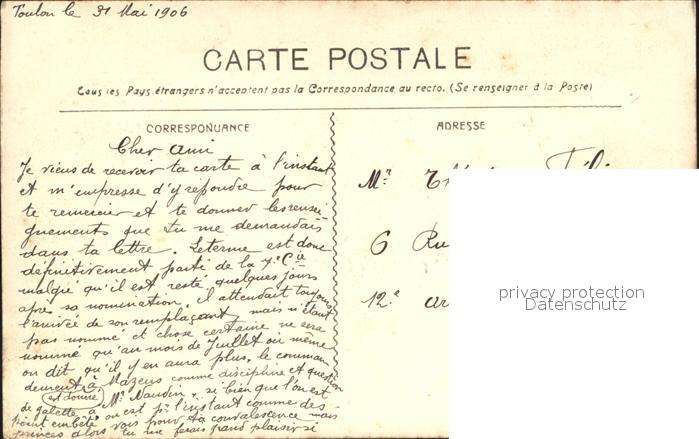 Toulon le 31 Mai 1906
CARTE POSTALE
Tous les Pays étrangers n'acceptent pas la Correspondance au recto. (Se renseigner à la Poste)
CORRESPONDANCE
ADRESSE
Cher ami
Je viens de recevoir ta carte à l'instant
et m'empresse d'y répondre pour
te remercier et te donner les rensei-
gnements que tu me demandais
dans ta lettre. Leterme est donc
définitivement parti de la Cie
malgré qu'il est resté quelques jours
après sa nomination. il attendait toujours
l'arrivée de son remplaçant, mais n'étant
pas nommé et chose certaine ne sera
nommé qu'au mois de Juillet ou même
on dit qu'il y en aura plus, le comman
dement à Mazeus comme discipline et question
est donné
de galette à Mr Naudin, si bien que l'on est
on est pr l'instant comme des
vous pour ta convalescence mais
princes alors tu me ferais grand plaisir si
Mr
6 Ru
12e ar
privacy protection
Datenschutz